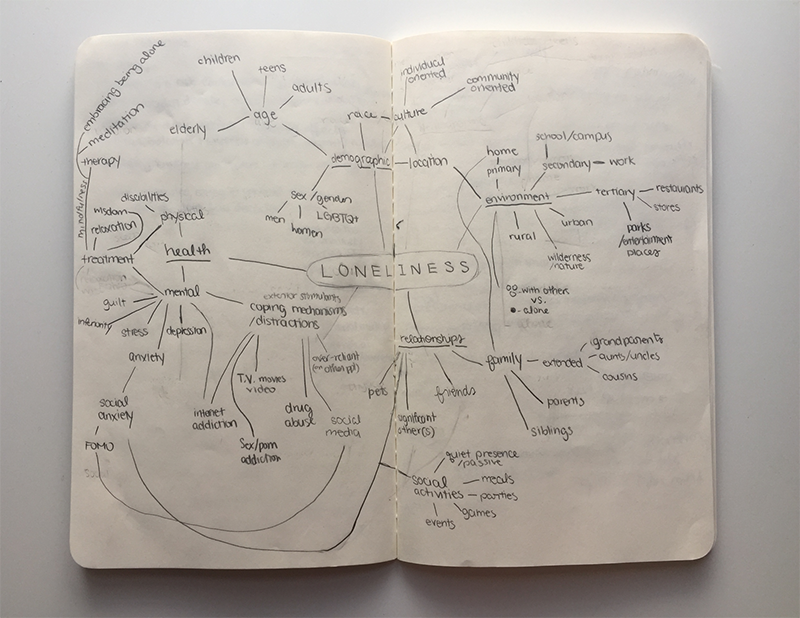 embracing being alone
meditation
therapy
mindfulness
children
teens
adults
age
elderly
individual
oriented
community
oriented
race
culture
demographic
location
sex/gender
men
women
LGBTQ+
school/campus
home
primary
secondary
work
environment
tertiary
restaurants
stores
parks
/entertainment
places
rural
urban
wilderness
/nature
with others
vs.
alone
disabilities
physical
wisdom
relaxation
treatment
health
LONELINESS
mental
guilt
inferiority
stress
depression
anxiety
social
anxiety
FOMO
exterior stimulants
coping mechanisms
/distractions
internet
addiction
T.V. movies
video
Sex/porn
addiction
drug
abuse
over-reliant
(on other ppl)
social
media
relationships
pets
significant
other(s)
friends
family
extended
grandparents
aunts/uncles
cousins
parents
siblings
social
activities
quiet presence
/passive
meals
parties
games
events